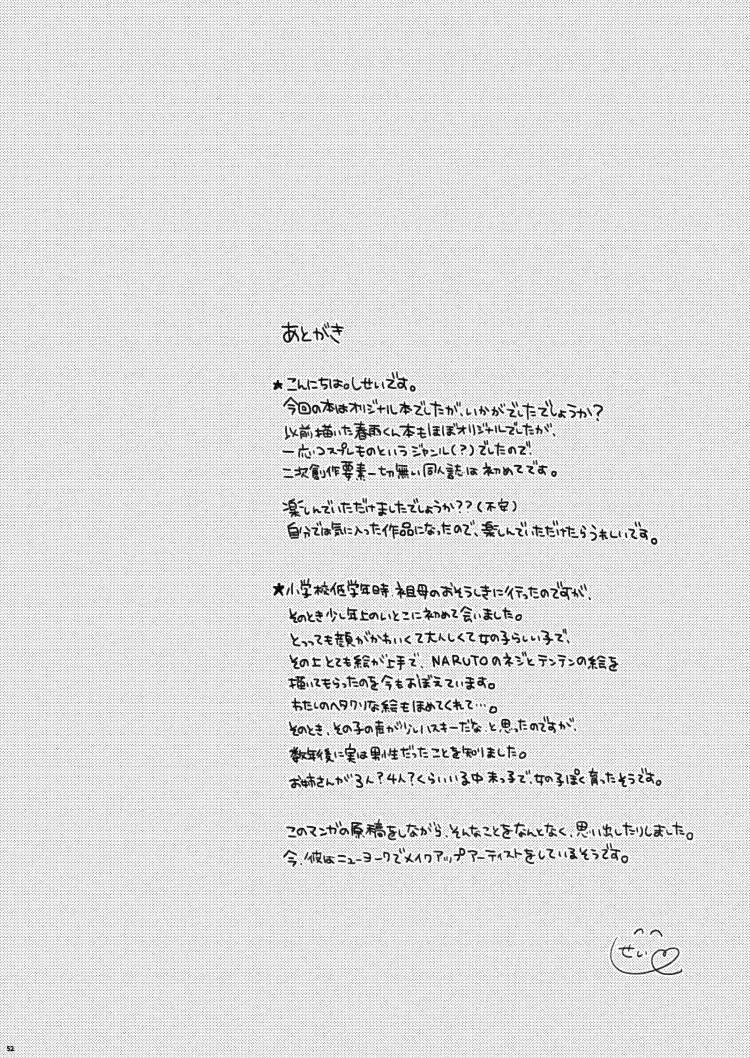 あとがき
★こんにちは。しせいです。
今回の本はオリジナル本でしたが、いかがでしたでしょうか?
以前描いた春雨くん本もほぼオリジナルでしたが、
一応コスプレものというジャンル(?)でしたので!
二次創作要素一切無い同人誌は初めてです。
楽しんでいただけましたでしょうか??(不安)
自分では気に入った作品になったので、楽しんでいただけたらうれしいです。
★小学校低学年時、祖母のおそうしきに行ったのですが、
そのとき少し年上のいとこに初めて会いました。
とっっても顔がかわいくて大人しくて女の子らしい子で、
その上とても絵が上手で、NARUTOのネジとテンテンの絵を
描いてもらったのを今もおぼえています。
わたしのヘタクソな絵もほめてくれて…。
そのとき、その子の声が少しハスキーだな、と思ったのですが、
数年後に実は男性だったことを知りました。
お姉さんが3人?4人?くらいいる中末っ子で、女の子ぽく育ったそうです。
このマンガの原稿をしながら、そんなことをなんとなく、思い出したりしました。
今、彼はニューヨークでメイクアップアーティストをしているそうです。
しせい
52